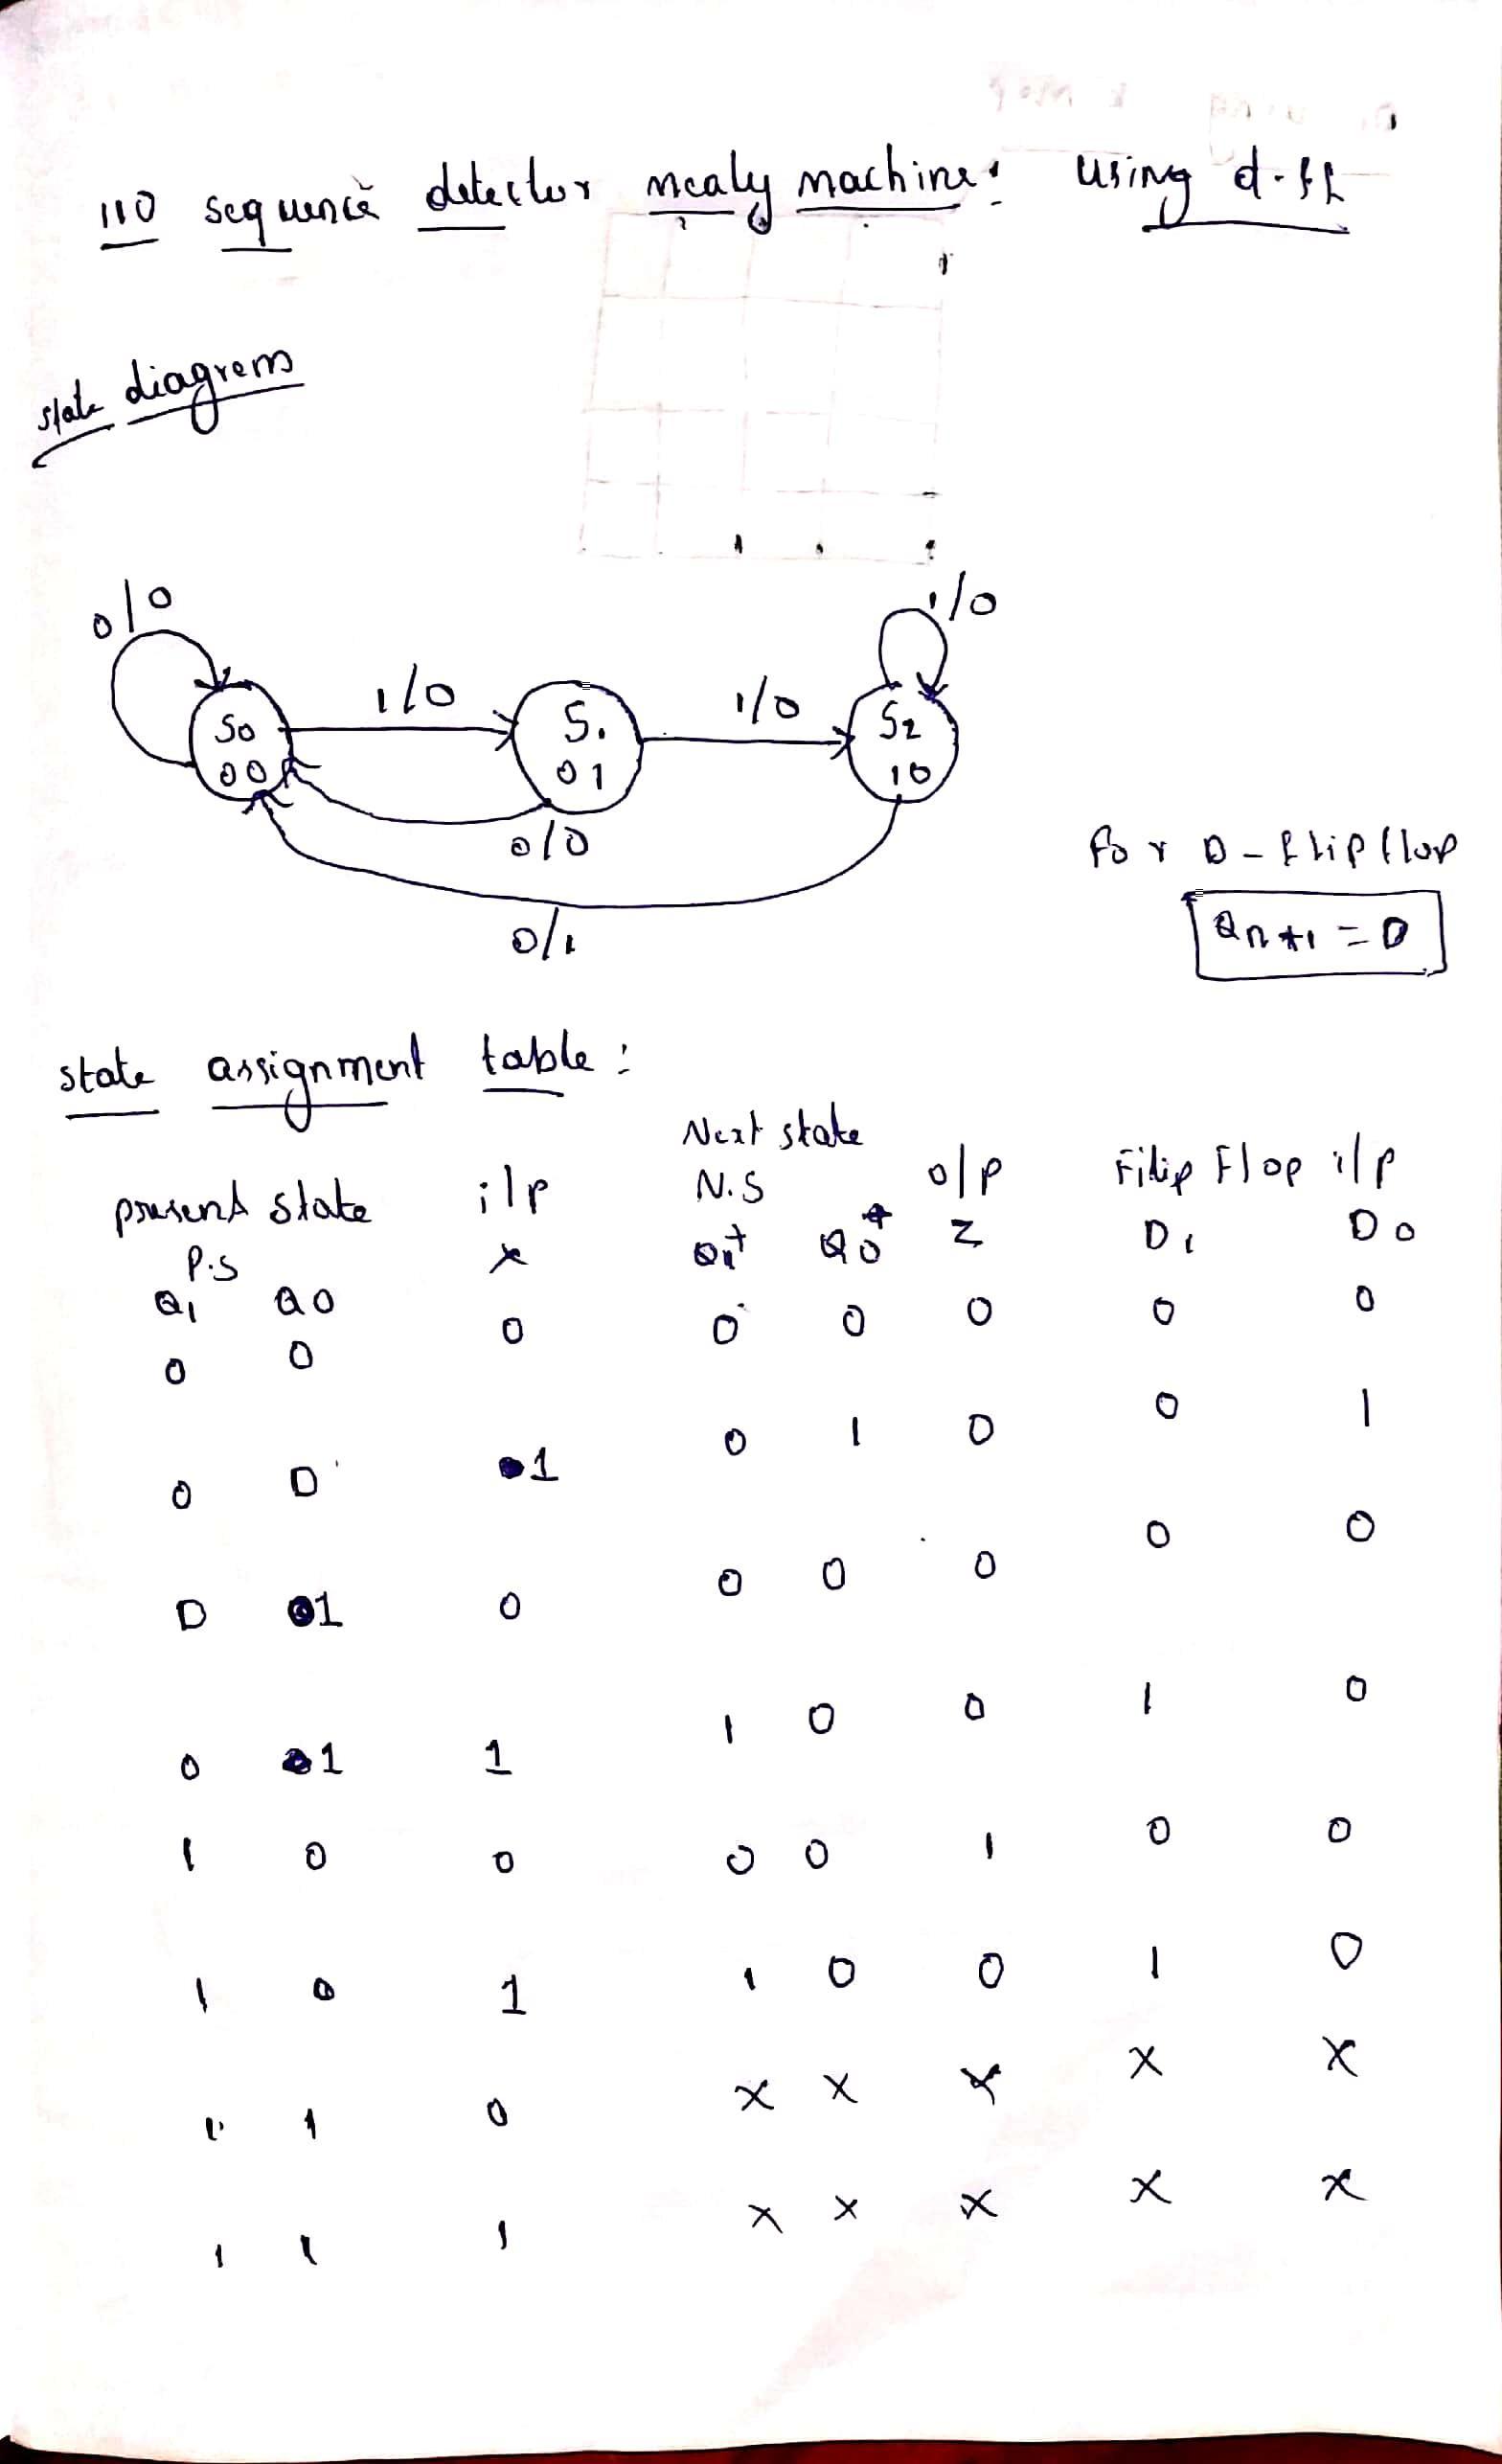 110 sequence detector mealy machine: using d-ff
state diagram
0/0
1/0
1/0
1/0
S0
00
S1
01
S2
10
0/0
0/1
for D-flipflop
Qn+1 = D
state assignment table:
Next state
present state i/p N.S o/p Filip Flop i/p
P.S x Q1+ Q0+ Z D1 D0
Q1 Q0
0 0 0 0 0 0 0 0
0 0 1 0 1 0 0 1
0 1 0 0 0 0 0 0
0 1 1 1 0 0 1 0
1 0 0 0 0 1 0 0
1 0 1 1 0 0 1 0
1 1 0 x x x x x
1 1 1 x x x x x